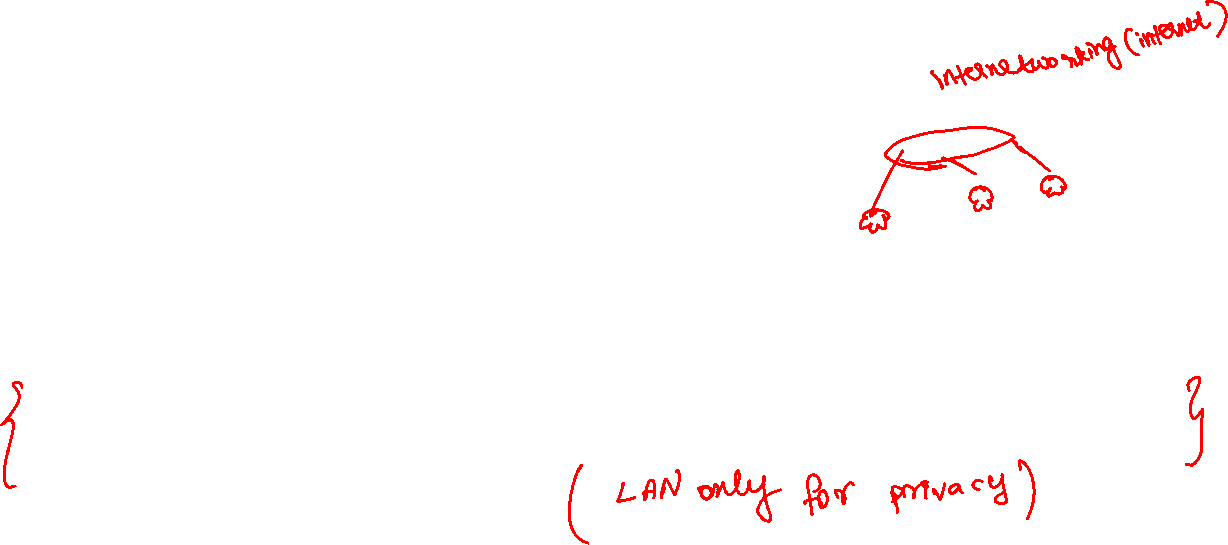 internetworking (internet)
{ }
(LAN only for privacy)